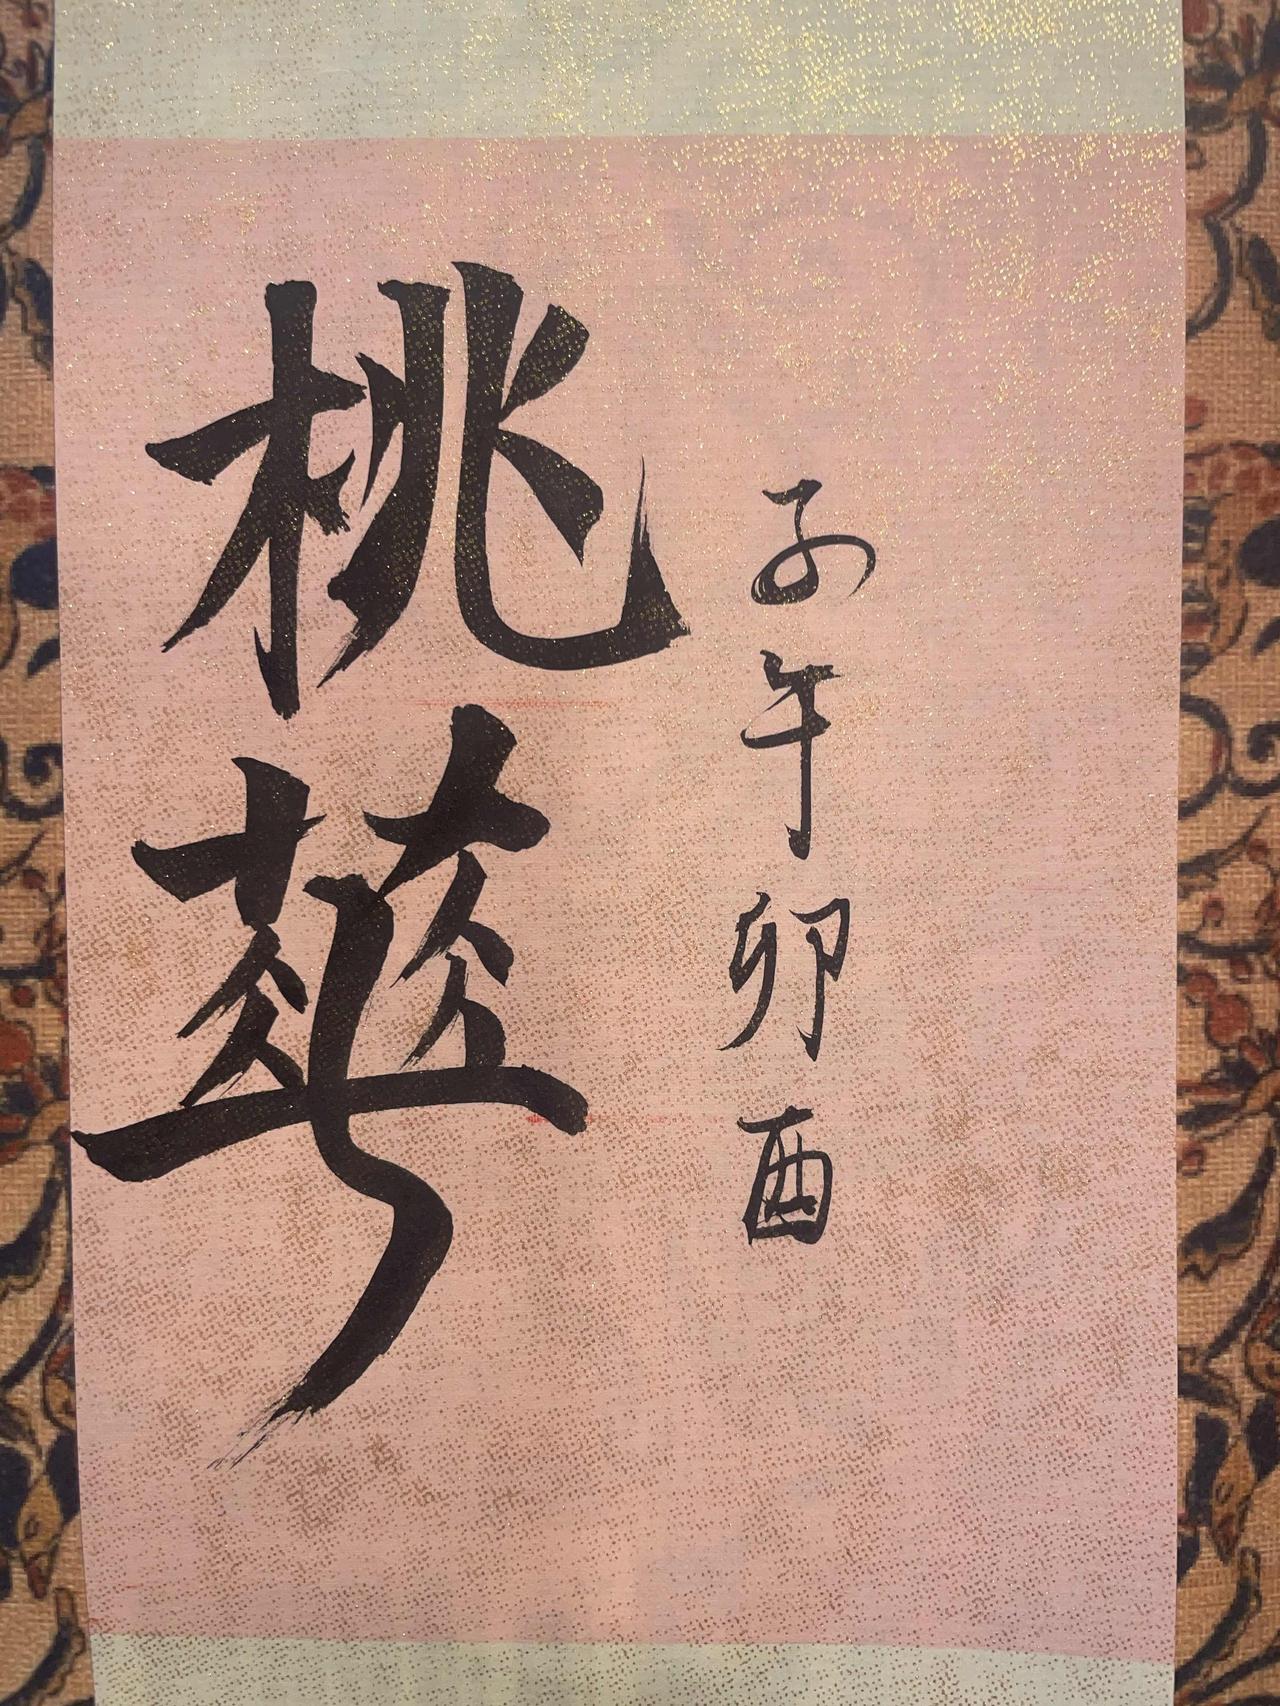 子午卯酉
桃華